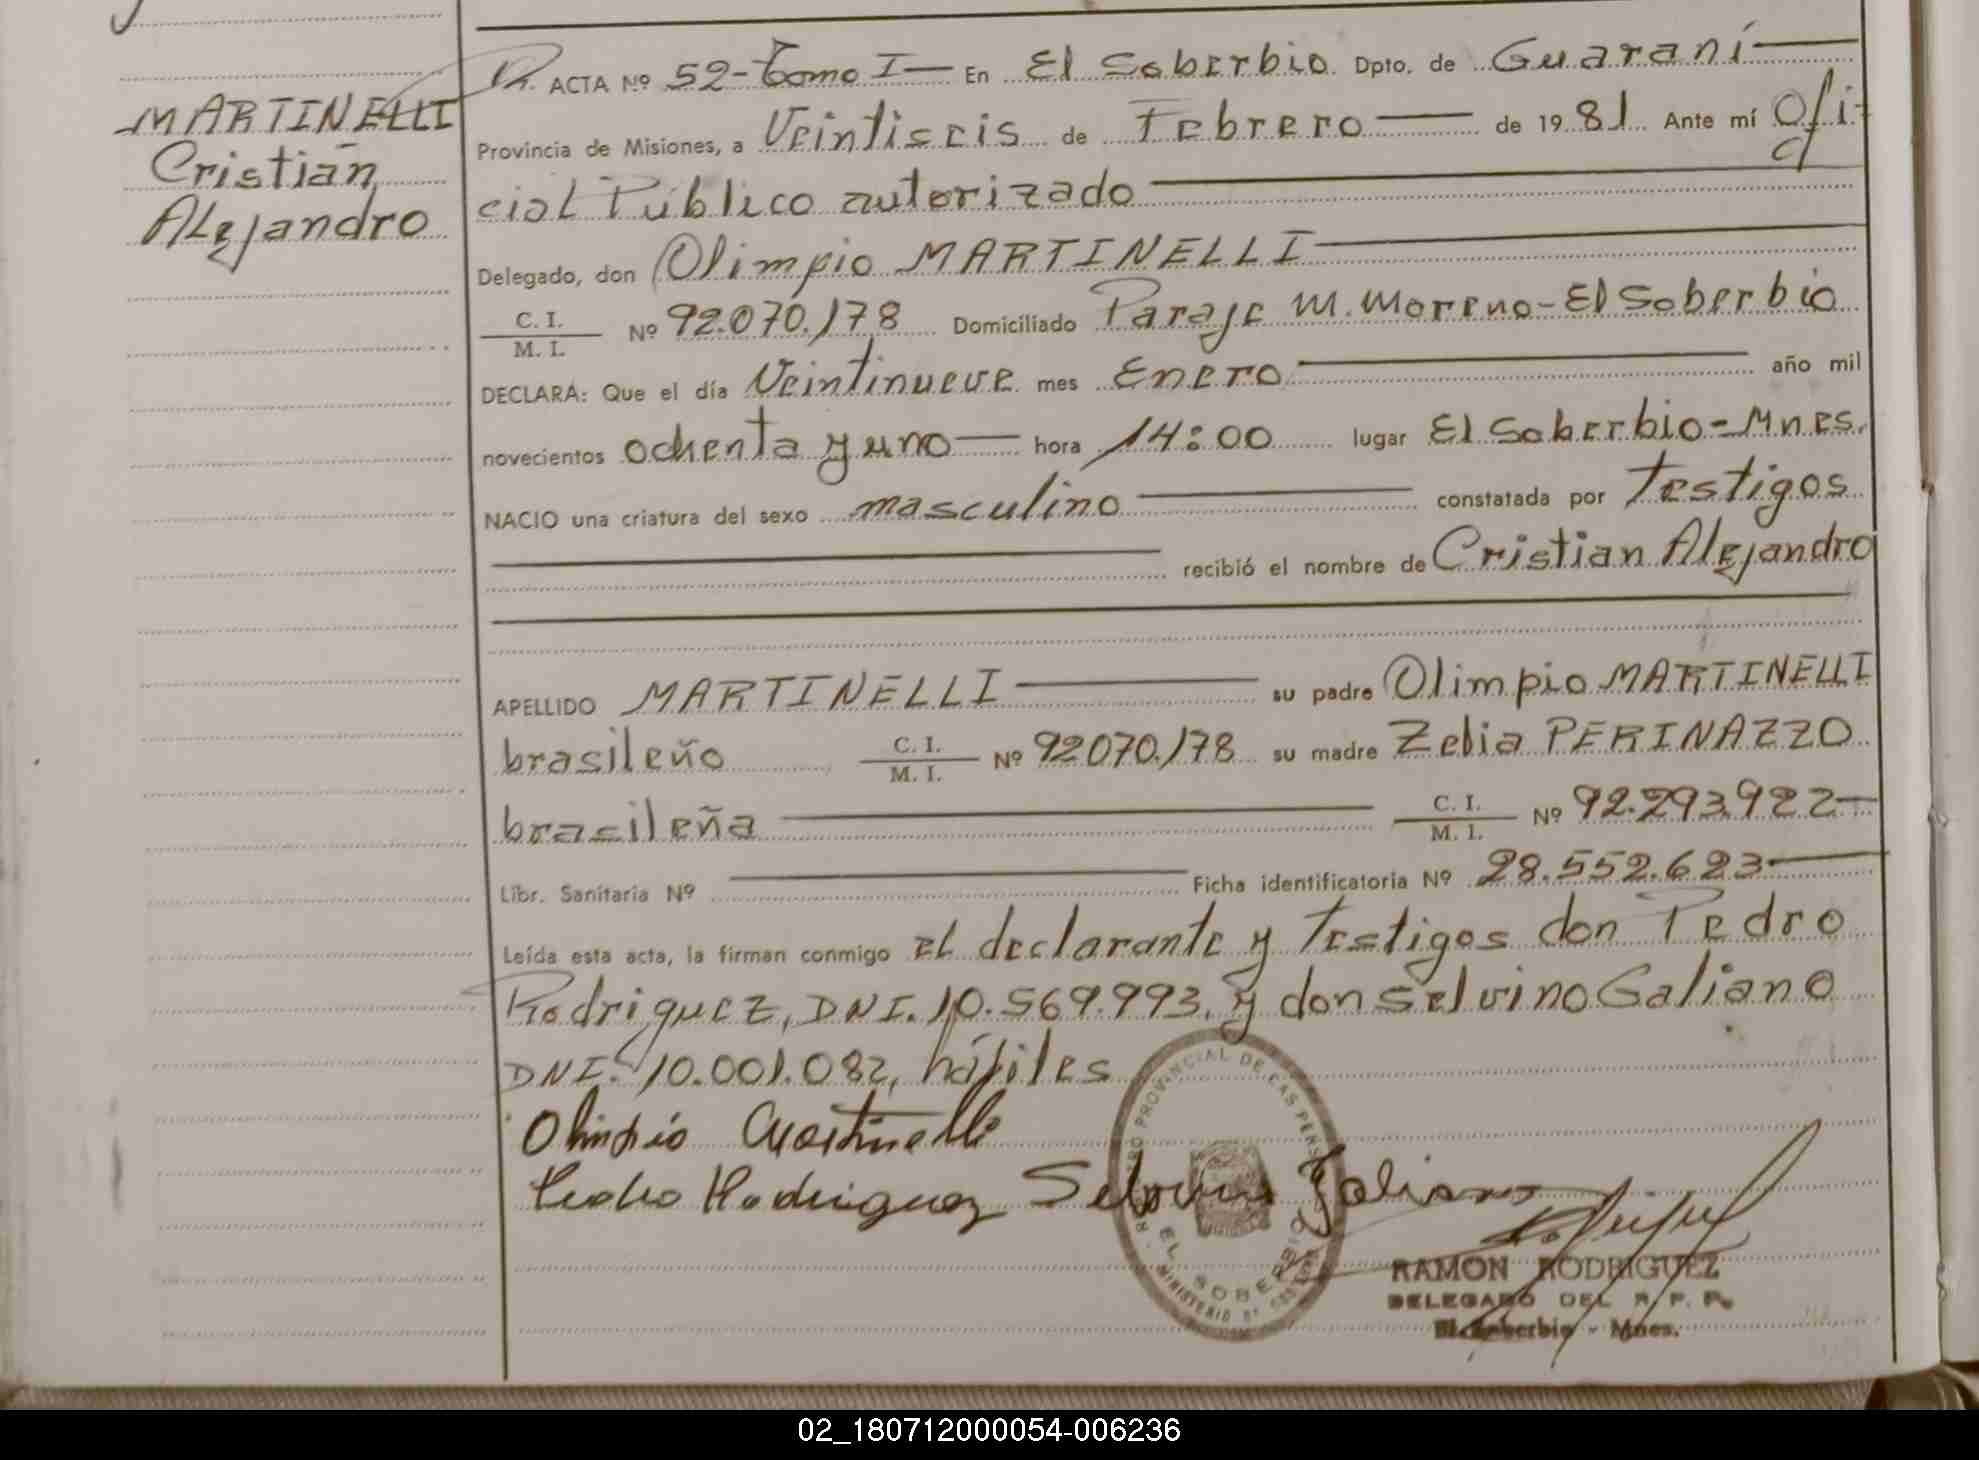 MARTINELLI
Cristian
Alejandro
ACTA Nº 52-Tomo I — En El Soberbio Dpto. de Guaraní
Provincia de Misiones, a Veintiseis de Febrero de 1981 Ante mí Ofi-
cial Público autorizado
Delegado, don Olimpio MARTINELLI
C. I. / M. I. Nº 92.070.178 Domiciliado Paraje M. Moreno-El Soberbio
DECLARA: Que el día Veintinueve mes Enero año mil
novecientos ochenta y uno hora 14:00 lugar El Soberbio-Mnes.
NACIO una criatura del sexo masculino constatada por Testigos
recibió el nombre de Cristian Alejandro
APELLIDO MARTINELLI su padre Olimpio MARTINELLI
brasileño C. I. / M. I. Nº 92070.178 su madre Zelia PERINAZZO
brasileña C. I. / M. I. Nº 92.293.922
Libr. Sanitaria Nº Ficha identificatoria Nº 28.552.623
Leída esta acta, la firman conmigo el declarante y testigos don Pedro
Rodriguez, DNI. 10.569.993, y don Selvino Galiano
DNI. 10.001.082, hábiles
Olimpio Martinelli
Pedro Rodriguez Selvino Galiano
PROVINCIAL DE LAS PERS
EL SOBERBIO
MINISTERIO DE
RAMON RODRIGUEZ
DELEGADO DEL R. P. P.
El Soberbio - Mnes.
02_180712000054-006236